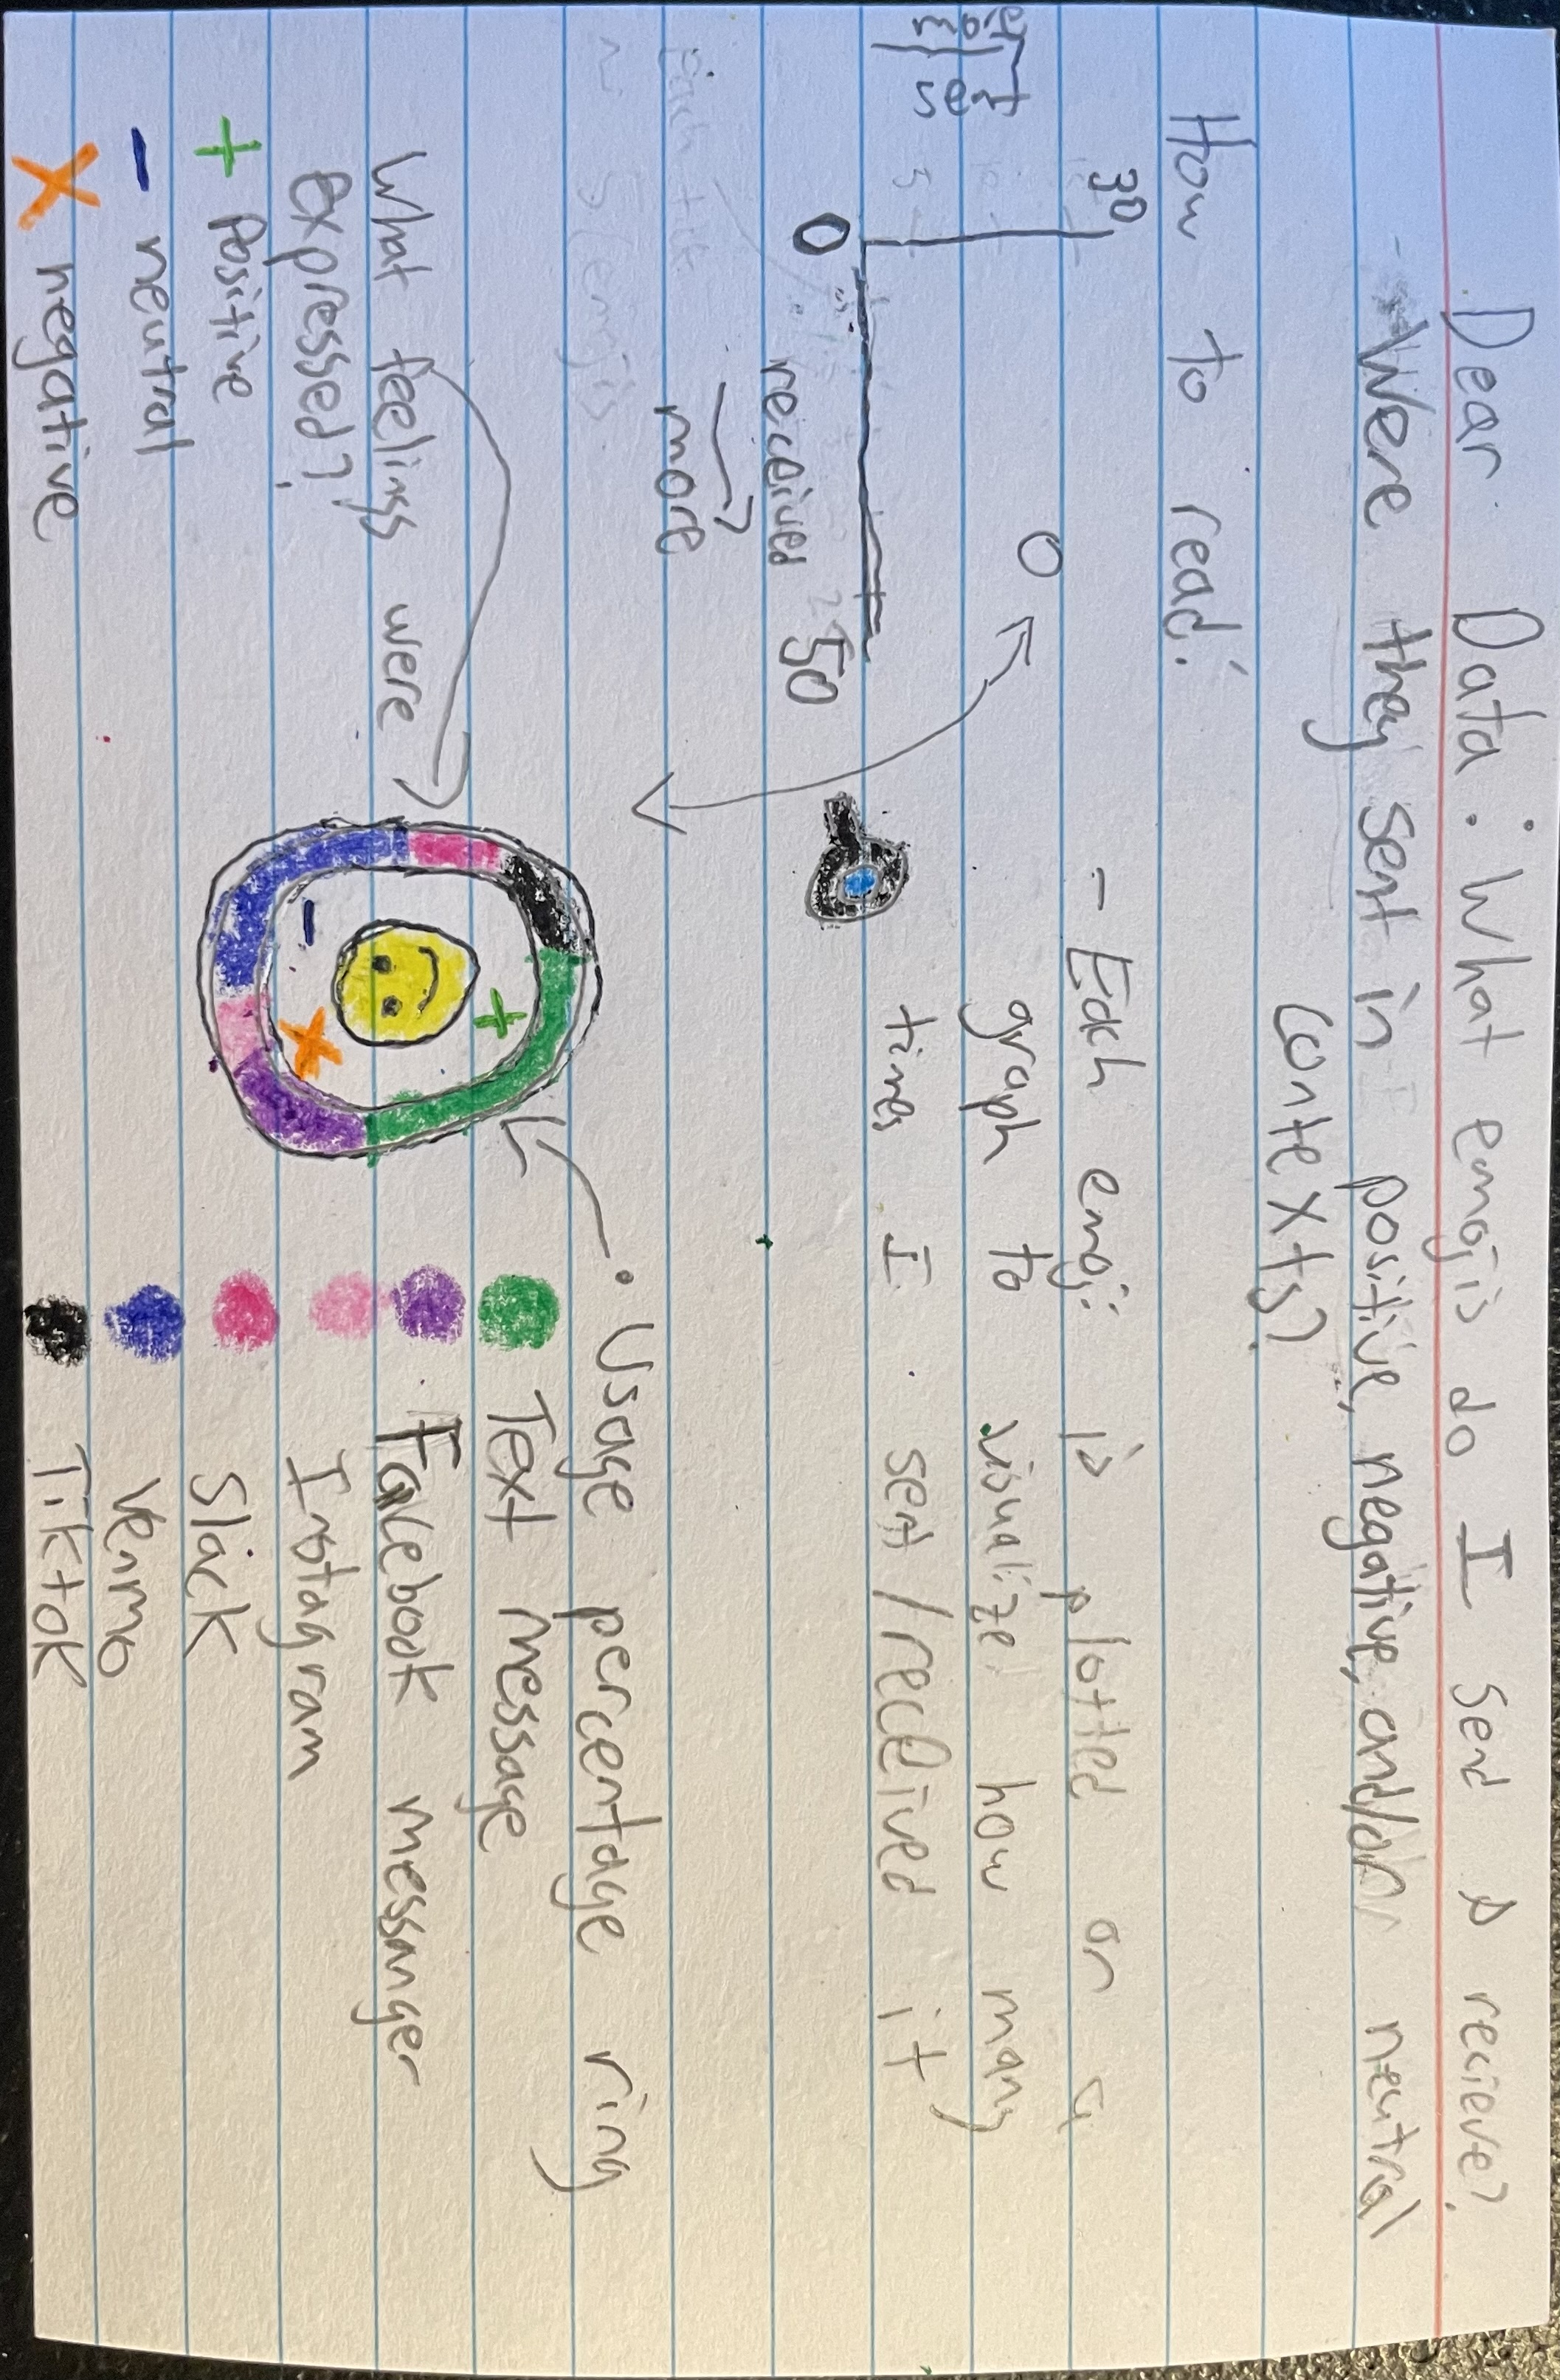 Dear Data: What emojis do I send & recieve?
Were they sent in positive, negative, and/or neutral
contexts?
How to read:
30
sent
more
0
50
received
more
- Each emoji is plotted on a
graph to visualize how many
times I sent/received it
5
Each tick
~ 5 emojis
• Usage percentage ring
Text message
Facebook messanger
Instagram
Slack
Venmo
Tiktok
What feelings were
expressed?
+ Positive
- neutral
X negative